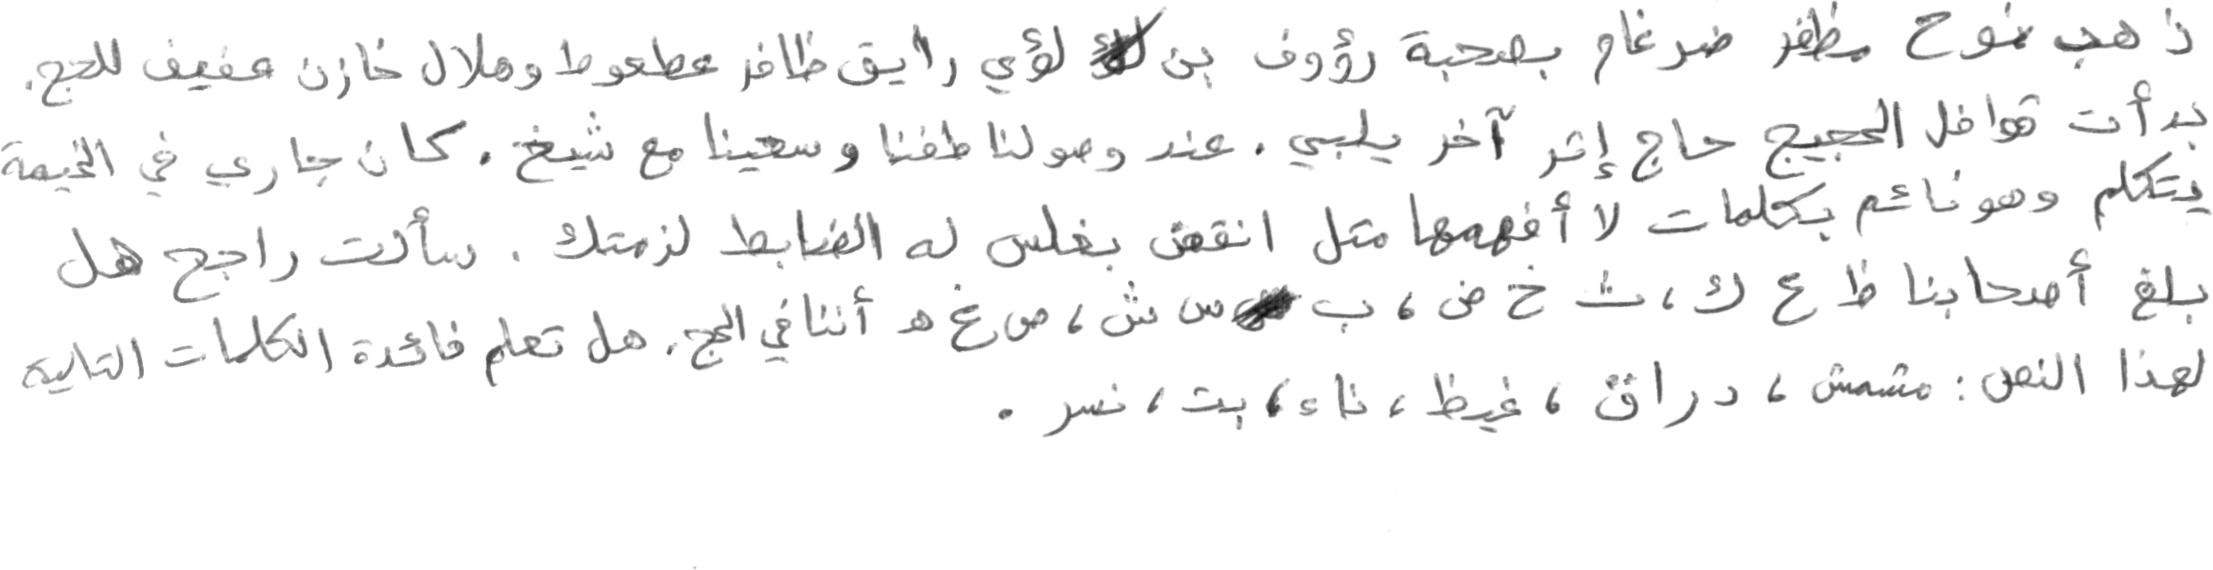 ذهب نوح مظفر ضرغام بصحبة رؤوف بن لؤي رايق ظافر عطعوط وهلال خازن عفيف للحج.
بدأت قوافل الحجيج حاج إثر آخر يلبي. عند وصولنا طفنا وسعينا مع شيخ. كان جاري في الخيمة
يتكلم وهو نائم بكلمات لا أفهمها مثل انقض بغلس له الضابط لزمتك. سألت راجح هل
بلغ أصحابنا ظ ع ك، ث خ ض، ب س ش، ص غ ه أننا في الحج. هل تعلم فائدة الكلمات التالية
لهذا النص: مشمش، دراق، غيظ، ناء، بت، نسر.